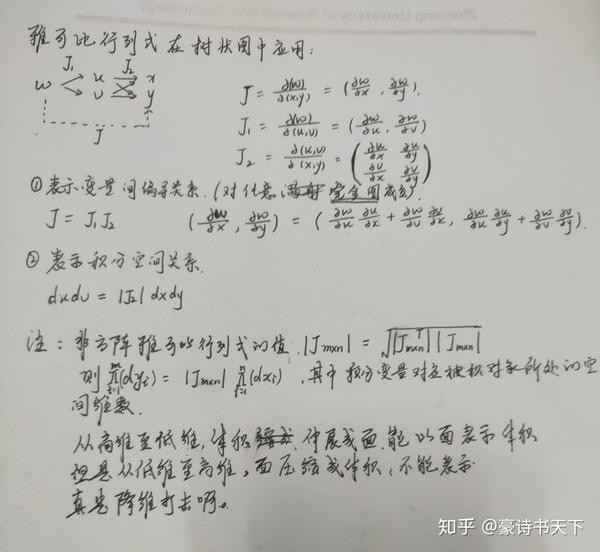 Zhejiang University of Science and Technology
雅可比行列式在树状图中应用:
J₁ J₂
w u x
v y
J
J = ∂(w)/∂(x,y) = (∂w/∂x, ∂w/∂y).
J₁ = ∂(w)/∂(u,v) = (∂w/∂u, ∂w/∂v)
J₂ = ∂(u,v)/∂(x,y) = (∂u/∂x ∂u/∂y
∂v/∂x ∂v/∂y)
①表示变量间偏导关系.(对任意完全图成立).
J = J₁J₂ (∂w/∂x, ∂w/∂y) = (∂w/∂u ∂u/∂x + ∂w/∂v ∂v/∂x, ∂w/∂u ∂u/∂y + ∂w/∂v ∂v/∂y).
② 表示积分空间关系.
dudv = |J₂| dxdy
注: 非方阵雅可比行列式的值. |Jm×n| = √|Jᵀm×n||Jm×n|
则 ∏(dyᵢ) = |Jm×n| ∏(dxᵢ), 其中积分变量对应被积对象所处的空
间维数.
从高维至低维, 体积 伸展成面, 能以面表示体积
但是从低维至高维, 面压缩成体积, 不能表示
真是降维打击啊。
知乎 @豪诗书天下